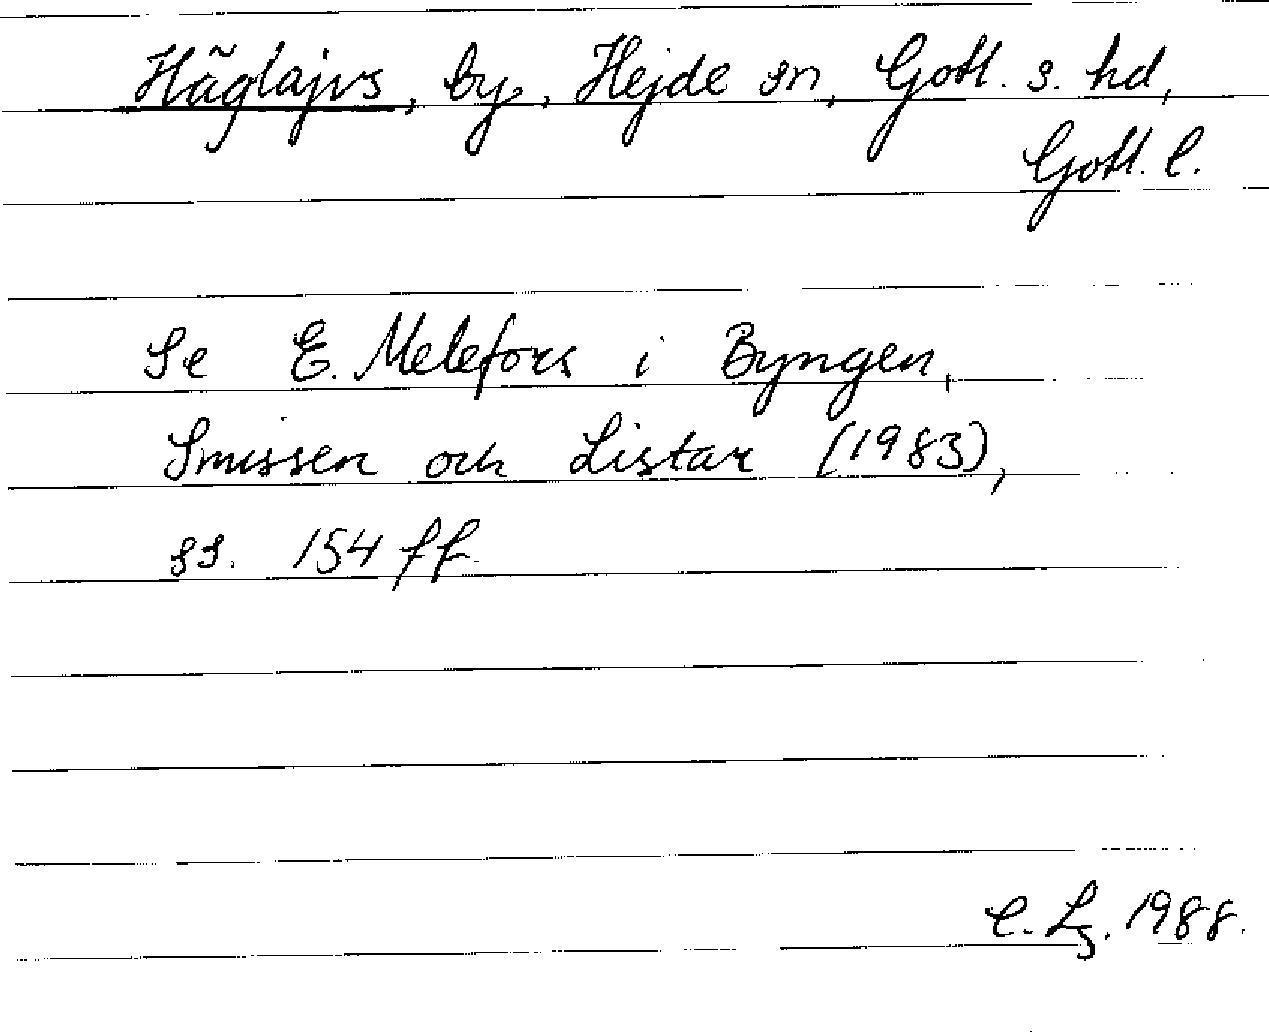 Häglajvs, by, Hejde sn, Gotl. s. hd,
Gotl. l.
Se E. Melefors i Byngen,
Smissen och Listar (1983),
ss. 154 ff
C. Lg. 1988.